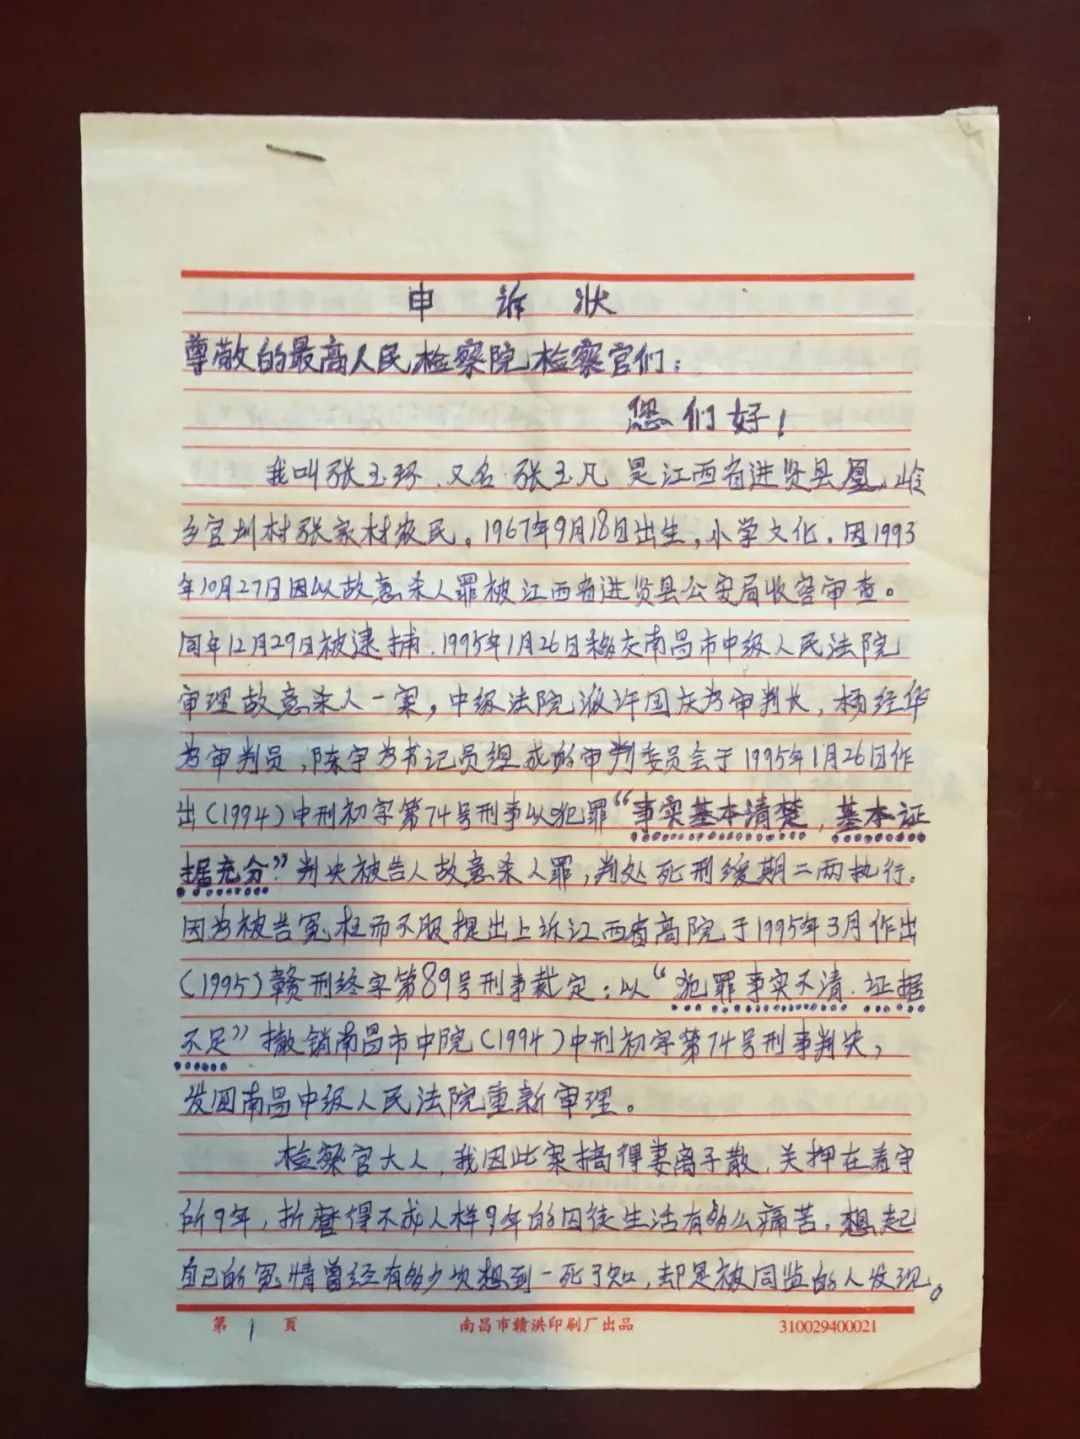 申诉状
尊敬的最高人民检察院检察官们：
您们好！
我叫张玉环、又名·张玉凡 是江西省进贤县凰岭
乡官圳村张家村农民。1967年9月18日出生，小学文化。因1993
年10月27日因以故意杀人罪被江西省进贤县公安局收容审查。
同年12月29日被逮捕．1995年1月26日移交南昌市中级人民法院
审理故意杀人一案，中级法院派许国庆为审判长，杨经华
为审判员，陈宇为书记员组成的审判委员会于1995年1月26日作
出(1994)中刑初字第74号刑事以犯罪“事实基本清楚，基本证
据充分”判决被告人故意杀人罪，判处死刑缓期二两执行。
因为被告冤枉而不服提出上诉江西省高院于1995年3月作出
(1995)赣刑终字第89号刑事裁定：以“犯罪事实不清．证据
不足”撤销南昌市中院(1994)中刑初字第74号刑事判决，
发回南昌中级人民法院重新审理。
检察官大人，我因此案搞得妻离子散．关押在看守
所9年，折磨得不成人样9年的囚徒生活有多么痛苦。想起
自己的冤情曾经有多少次想到一死了知，却是被同监的人发现。
第 1 页 南昌市赣洪印刷厂出品 310029400021